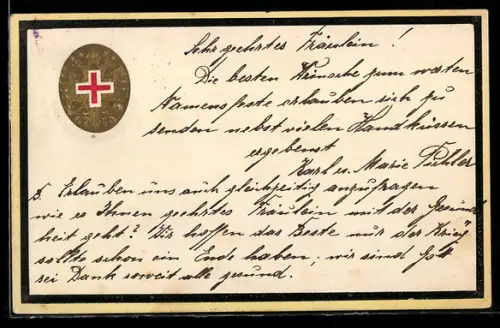 Sehr geehrtes Fräulein!
Die besten Wünsche zum werten
Namensfeste erlauben sich zu
senden nebst vielen Handküssen
ergebenst
Karl u. Marie Pichler
Erlauben uns auch gleichzeitig anzufragen
wie es Ihnen geehrtes Fräulein mit der Gesund
heit geht? Wir hoffen das Beste nur der Krieg
sollte schon ein Ende haben; wir sind Gott
sei Dank soweit alle gesund.